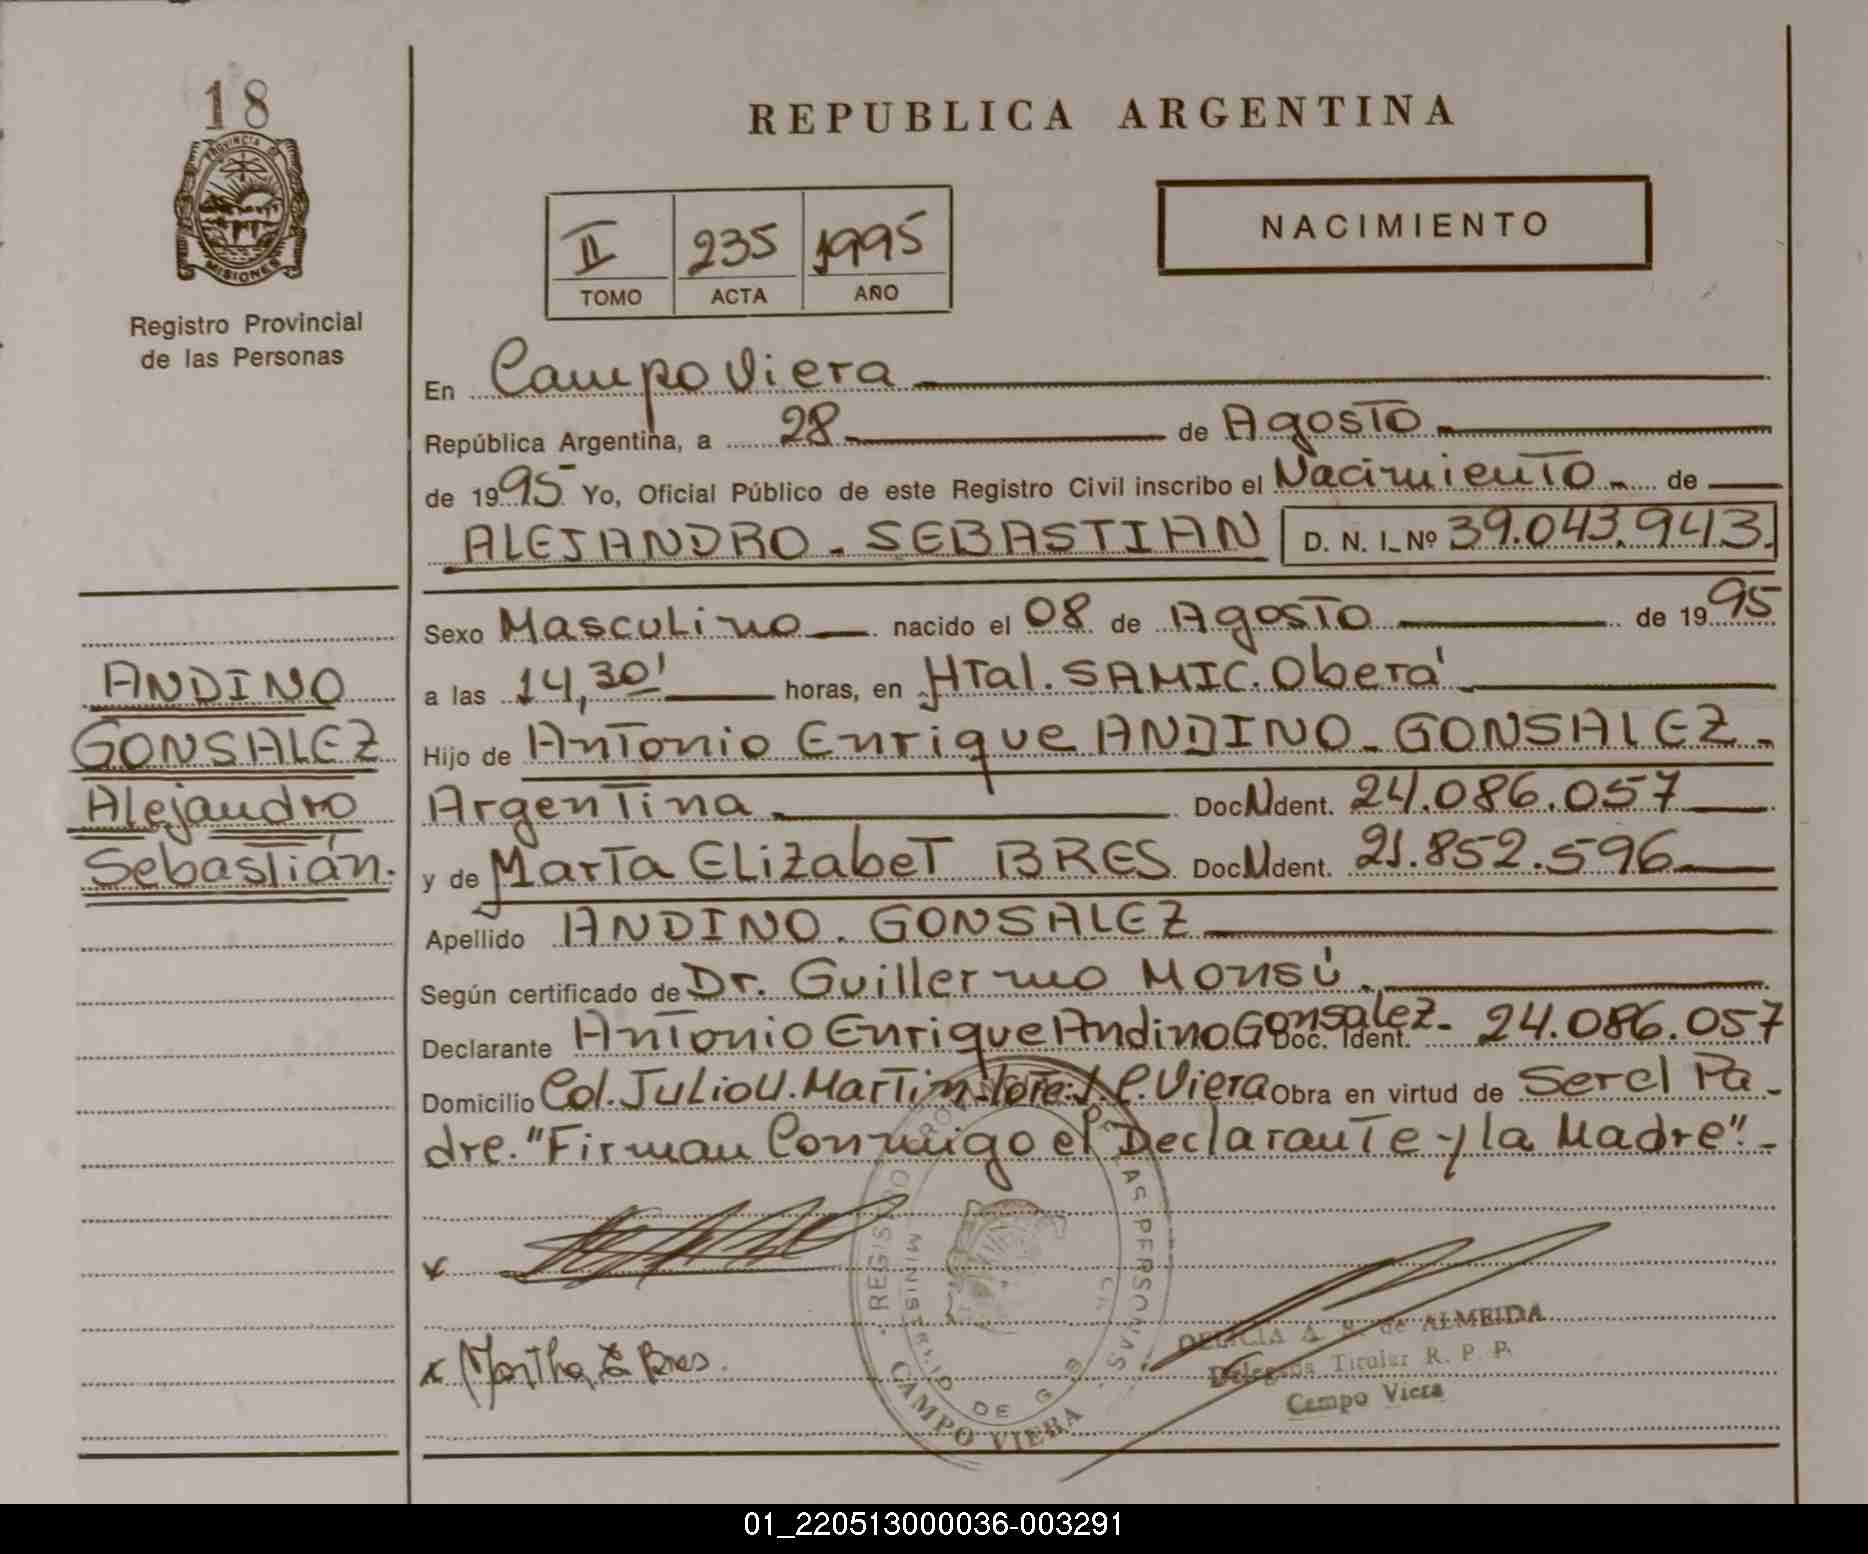 18
PROVINCIA DE
MISIONES
Registro Provincial
de las Personas
REPUBLICA ARGENTINA
NACIMIENTO
II 235 1995
TOMO ACTA AÑO
En Campo Viera
República Argentina, a 28 de Agosto
de 1995 Yo, Oficial Público de este Registro Civil inscribo el Nacimiento de
ALEJANDRO - SEBASTIAN D. N. I. Nº 39.043.943.
Sexo Masculino nacido el 08 de Agosto de 1995
a las 14,30' horas, en Htal. SAMIC. Oberá
Hijo de Antonio Enrique ANDINO - GONSALEZ -
Argentina Doc. Ident. 24.086.057
y de Marta Elizabet BRES Doc. Ident. 21.852.596
Apellido ANDINO - GONSALEZ
Según certificado de Dr. Guillermo Monsú.
Declarante Antonio Enrique Andino Gonsalez - Doc. Ident. 24.086.057
Domicilio Col. Julio U. Martin. lote: 1. C. Viera Obra en virtud de Ser el Pa-
dre. "Firman Conmigo el Declarante y la Madre".-
ANDINO
GONSALEZ
Alejandro
Sebastián.
x
x Martha E Bres.
REGISTRO PROVINCIAL DE LAS PERSONAS
MINISTERIO DE GOB
CAMPO VIERA
DELICIA A. de ALMEIDA
Delegada Titular R. P. P.
Campo Viera
01_220513000036-003291